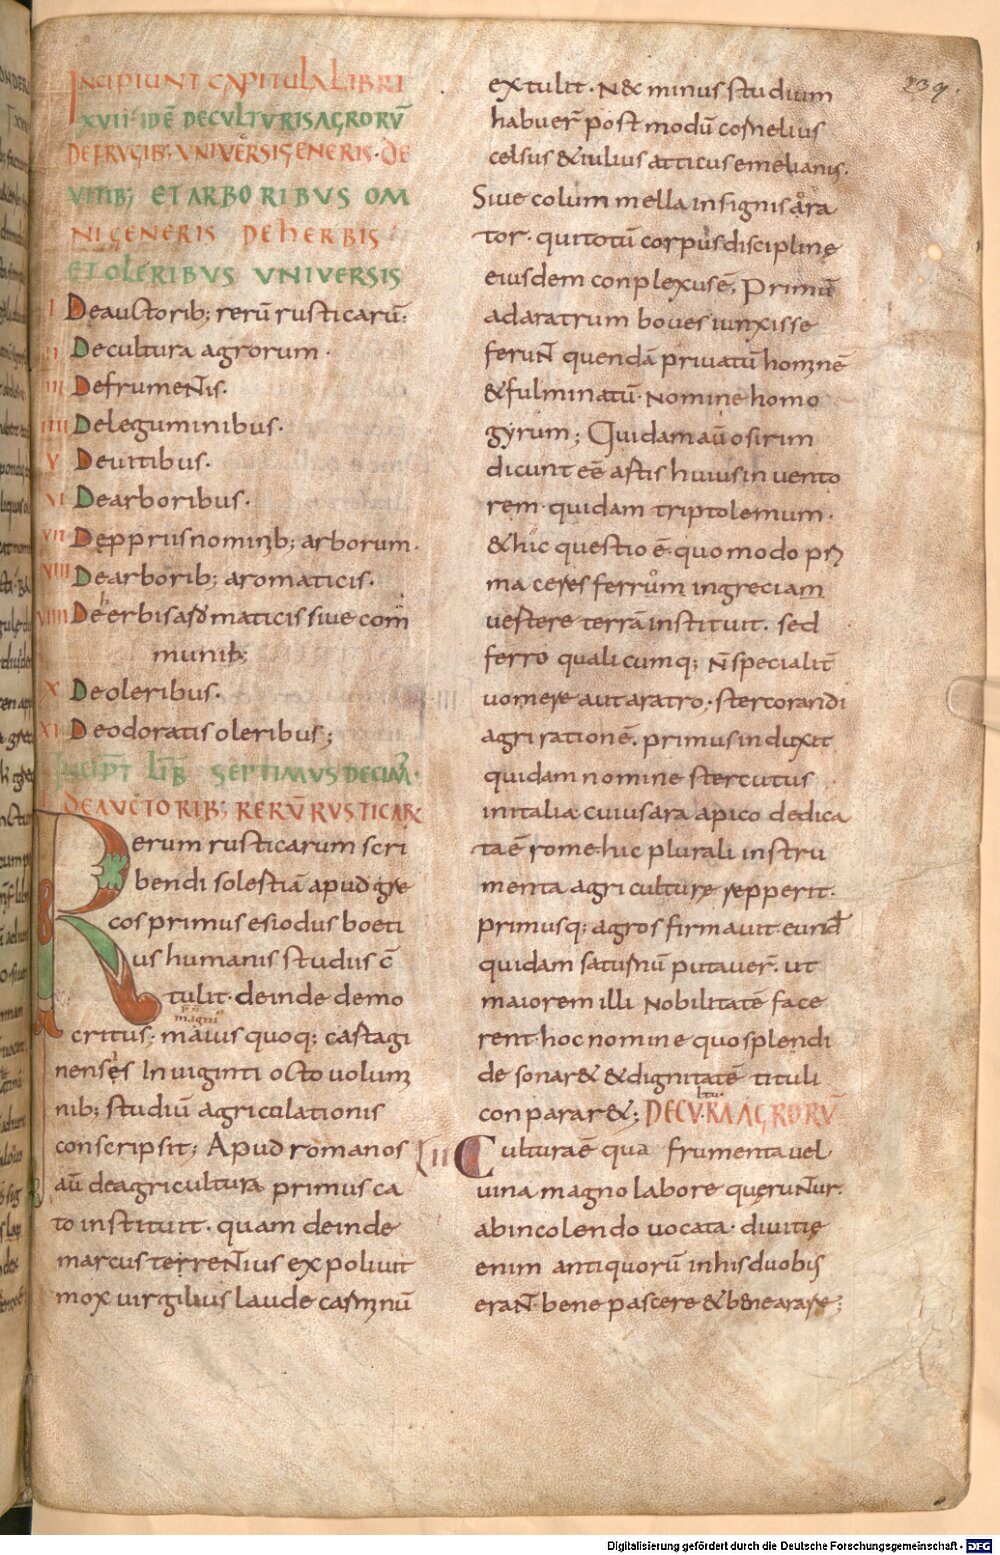 INCIPIUNT CAPITULA LIBRI
XVII· IDÉ DECULTURIS AGRORŪ
DEFRUGIB; UNIVERSI GENERIS· DE
VITIB; ET ARBORIBUS OM
NI GENERIS DE HERBIS
ET OLERIBUS UNIVERSIS
I Deauctorib; rerū rusticarū:
II Decultura agrorum·
III Defrumentis·
IIII Deleguminibus·
V Deuitibus·
VI Dearboribus·
VII Deppriis nominib; arborum·
VIII Dearborib; aromaticis·
VIIII Deherbis aromaticis siue com
munib;
X Deoleribus·
XI Deodoratis oleribus;
INCIPT LIB SEPTIMUS DECIM·
I DEAUCTORIB; RERŪ RUSTICAR
Rerum rusticarum scri
bendi solertiā apud gre
cos primus esiodus boeti
us humanis studiis c̄
tulit· deinde demo
critus; maius quoq; cartagi
nenses In uiginti octo uolumi
nib; studiū agriculationis
conscripsit; Apud romanos
aū deagricultura primus ca
to instituit· quam deinde
marcus terrentius expoliuit
mox uirgilius laude carminū
extulit· N& minus studium
habuer̄ post modū cornelius
celsus & iulius atticus emelianus·
Siue colum mella insignis ora
tor· qui totū corpus discipline
eiusdem conplexus ē; Primū
ad aratrum boues iunxisse
ferunt quendā priuatū hominē
& fulminatū· Nomine homo
gyrum; Quidam aū osirim
dicunt eē artis huius in uento
rem· quidam triptolemum·
& hic questio ē· quo modo pri
ma ceres ferrum in greciam
uertere terrā instituit· sed
ferro qualicumq; n̄ specialit̄
uomere aut aratro· stercorandi
agri rationē· primus induxit
quidam nomine stercutus
in italia cuius ara a pico dedica
ta ē rome· hic plurali instru
menta agri culture repperit·
primusq; agros firmauit· eund̄
quidam saturnū putauer̄· ut
maiorem illi Nobilitatē face
rent· hoc nomine quo splendi
de sonar& & dignitatē tituli
conparar&; DECULTURA AGRORŪ
II Cultura ē qua frumenta uel
uina magno labore queruntur·
ab incolendo uocata· diuitie
enim antiquorū in his duobis
erant· bene pascere & bene arare;
239·
Digitalisierung gefördert durch die Deutsche Forschungsgemeinschaft - DFG